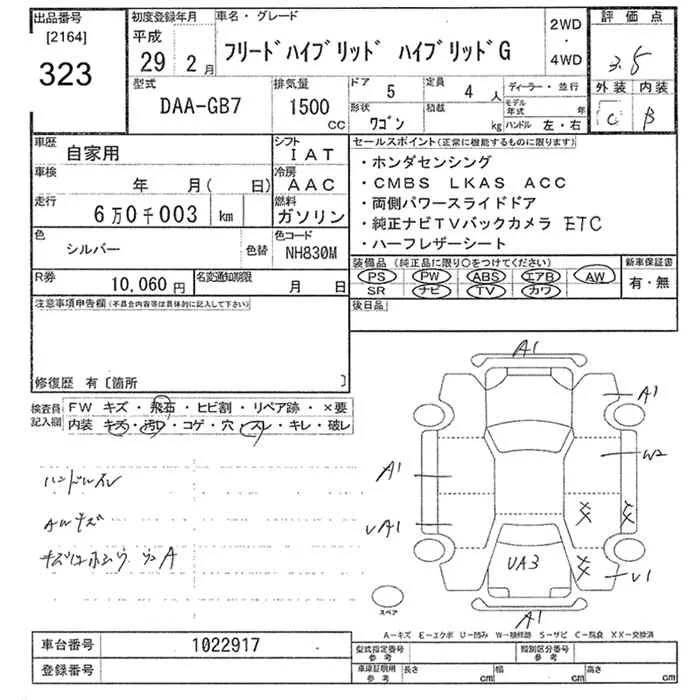 出品番号
[2164]
323
初度登録年月
平成
29 2月
車名・グレード
フリードハイブリッド ハイブリッドG
2WD
・
4WD
評価点
3.5
外装 内装
C B
型式
DAA-GB7
排気量
1500
CC
ドア 5
定員 4人
形状 ワゴン
積載 kg
ディーラー・並行
モデル年式 年
ハンドル 左・右
車歴
自家用
シフト
IAT
車検
年 月( 日)
冷房
AAC
走行
6万0千003 km
燃料
ガソリン
色
シルバー
色替
色コード
NH830M
R券
10,060円
名変通知期限
月 日
セールスポイント(正常に機能するものに限ります)
・ホンダセンシング
・CMBS LKAS ACC
・両側パワースライドドア
・純正ナビTVバックカメラ ETC
・ハーフレザーシート
装備品 (純正品に限り○をつけてください)
PS PW ABS エアB AW
SR ナビ TV カワ
新車保証書
有・無
後日品
注意事項申告欄(不具合内容等は具体的に記入して下さい)
修復歴 有〔箇所 〕
検査員
記入欄
FW キズ・飛石・ヒビ割・リペア跡・×要
内装 キズ・汚レ・コゲ・穴・スレ・キレ・破レ
ハンドルスレ
AWキズ
A1
A1
A1
W2
UA1
XX
XX
UA3
XX
U1
A1
スペア
A-キズ E-エクボ U-凹み W-補修跡 S-サビ C-腐食 XX-交換済
車台番号
1022917
登録番号
型式指定番号
参考
類別区分番号
参考
車庫証明用
参考
長さ cm
幅 cm
高さ cm